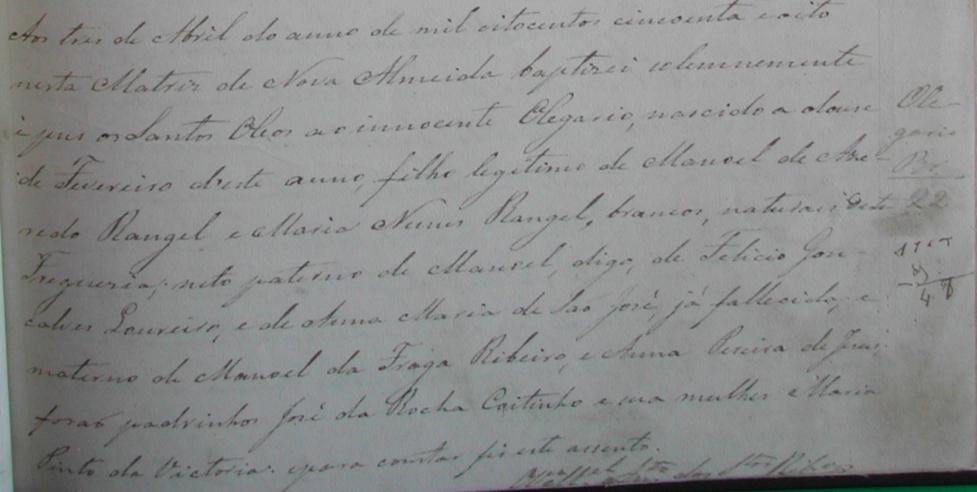 Aos tres de Abril do anno de mil oitocentos cincoenta e oito
nesta Matriz de Nova Almeida baptizei solemnemente
e pus os Santos Oleos ao innocente Olegario, nascido a douse
de Fevereiro d'este anno, filho legitimo de Manoel de Aze-
redo Rangel e Maria Nunes Rangel, brancos, naturais desta
Freguezia; neto paterno de Manoel, digo, de Felicio Gon-
calves Loureiro, e de Anna Maria de São José, já fallecida; e
materno de Manoel da Fraga Ribeiro, e Anna Pereira de Jesus;
forão padrinhos José da Rocha Coitinho e sua mulher Maria
Pinto da Victoria: e para constar fis este assento.
Ole-
gario
Br.
22